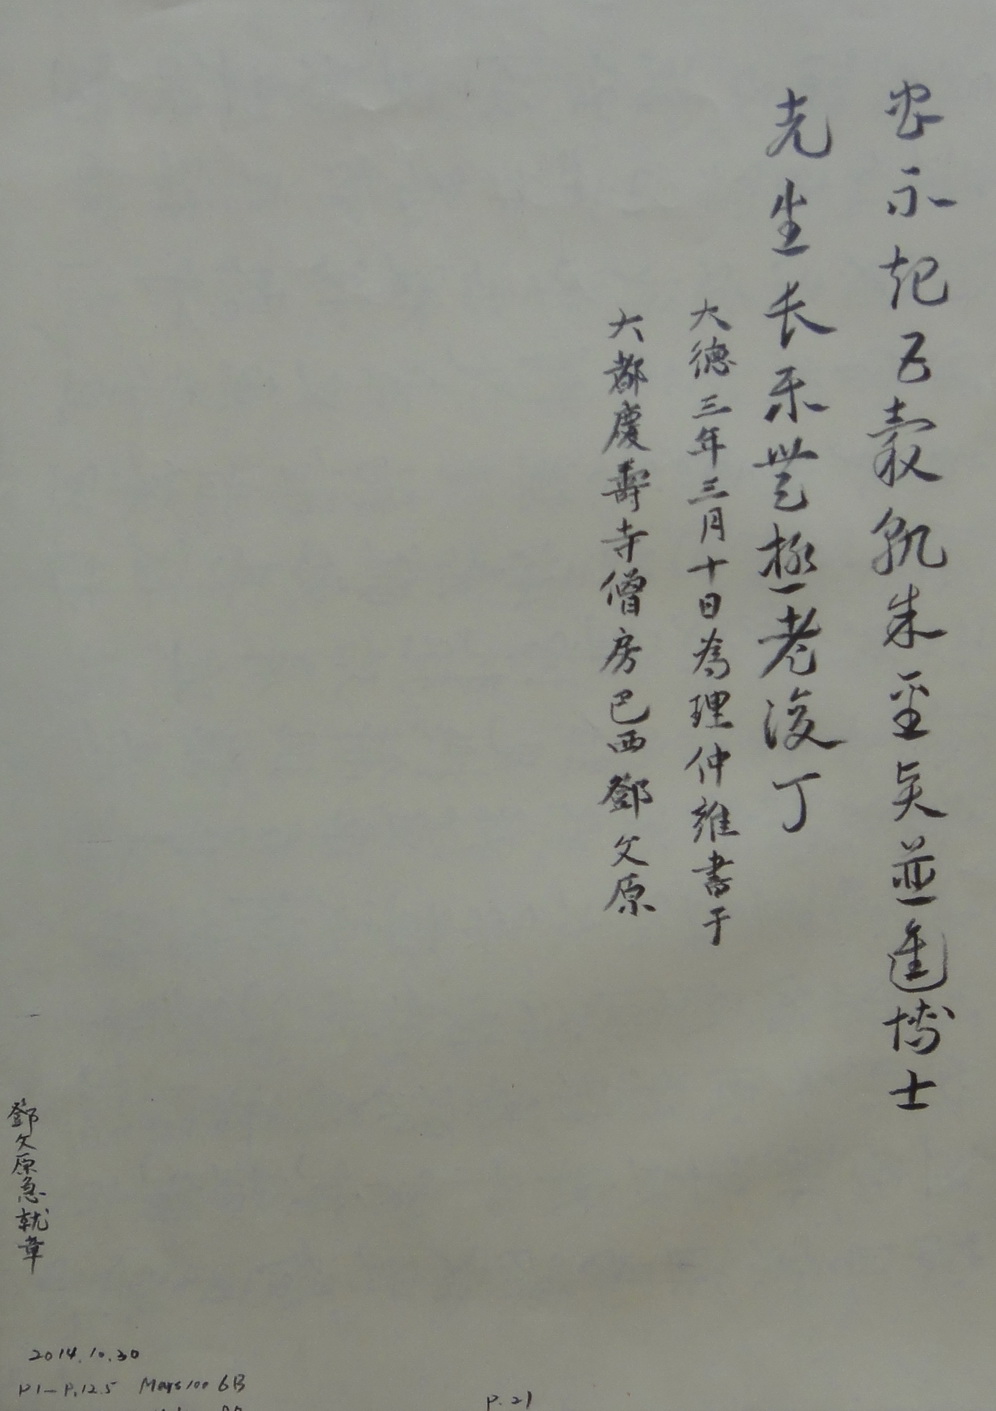 害不起五穀孰成至矣並進博士
先生長樂無極老復丁
大德三年三月十日為理仲雍書于
大都慶壽寺僧房巴西鄧文原
鄧文原急就章
2014.10.30
P1-P.125 Mars100 6B
P.21